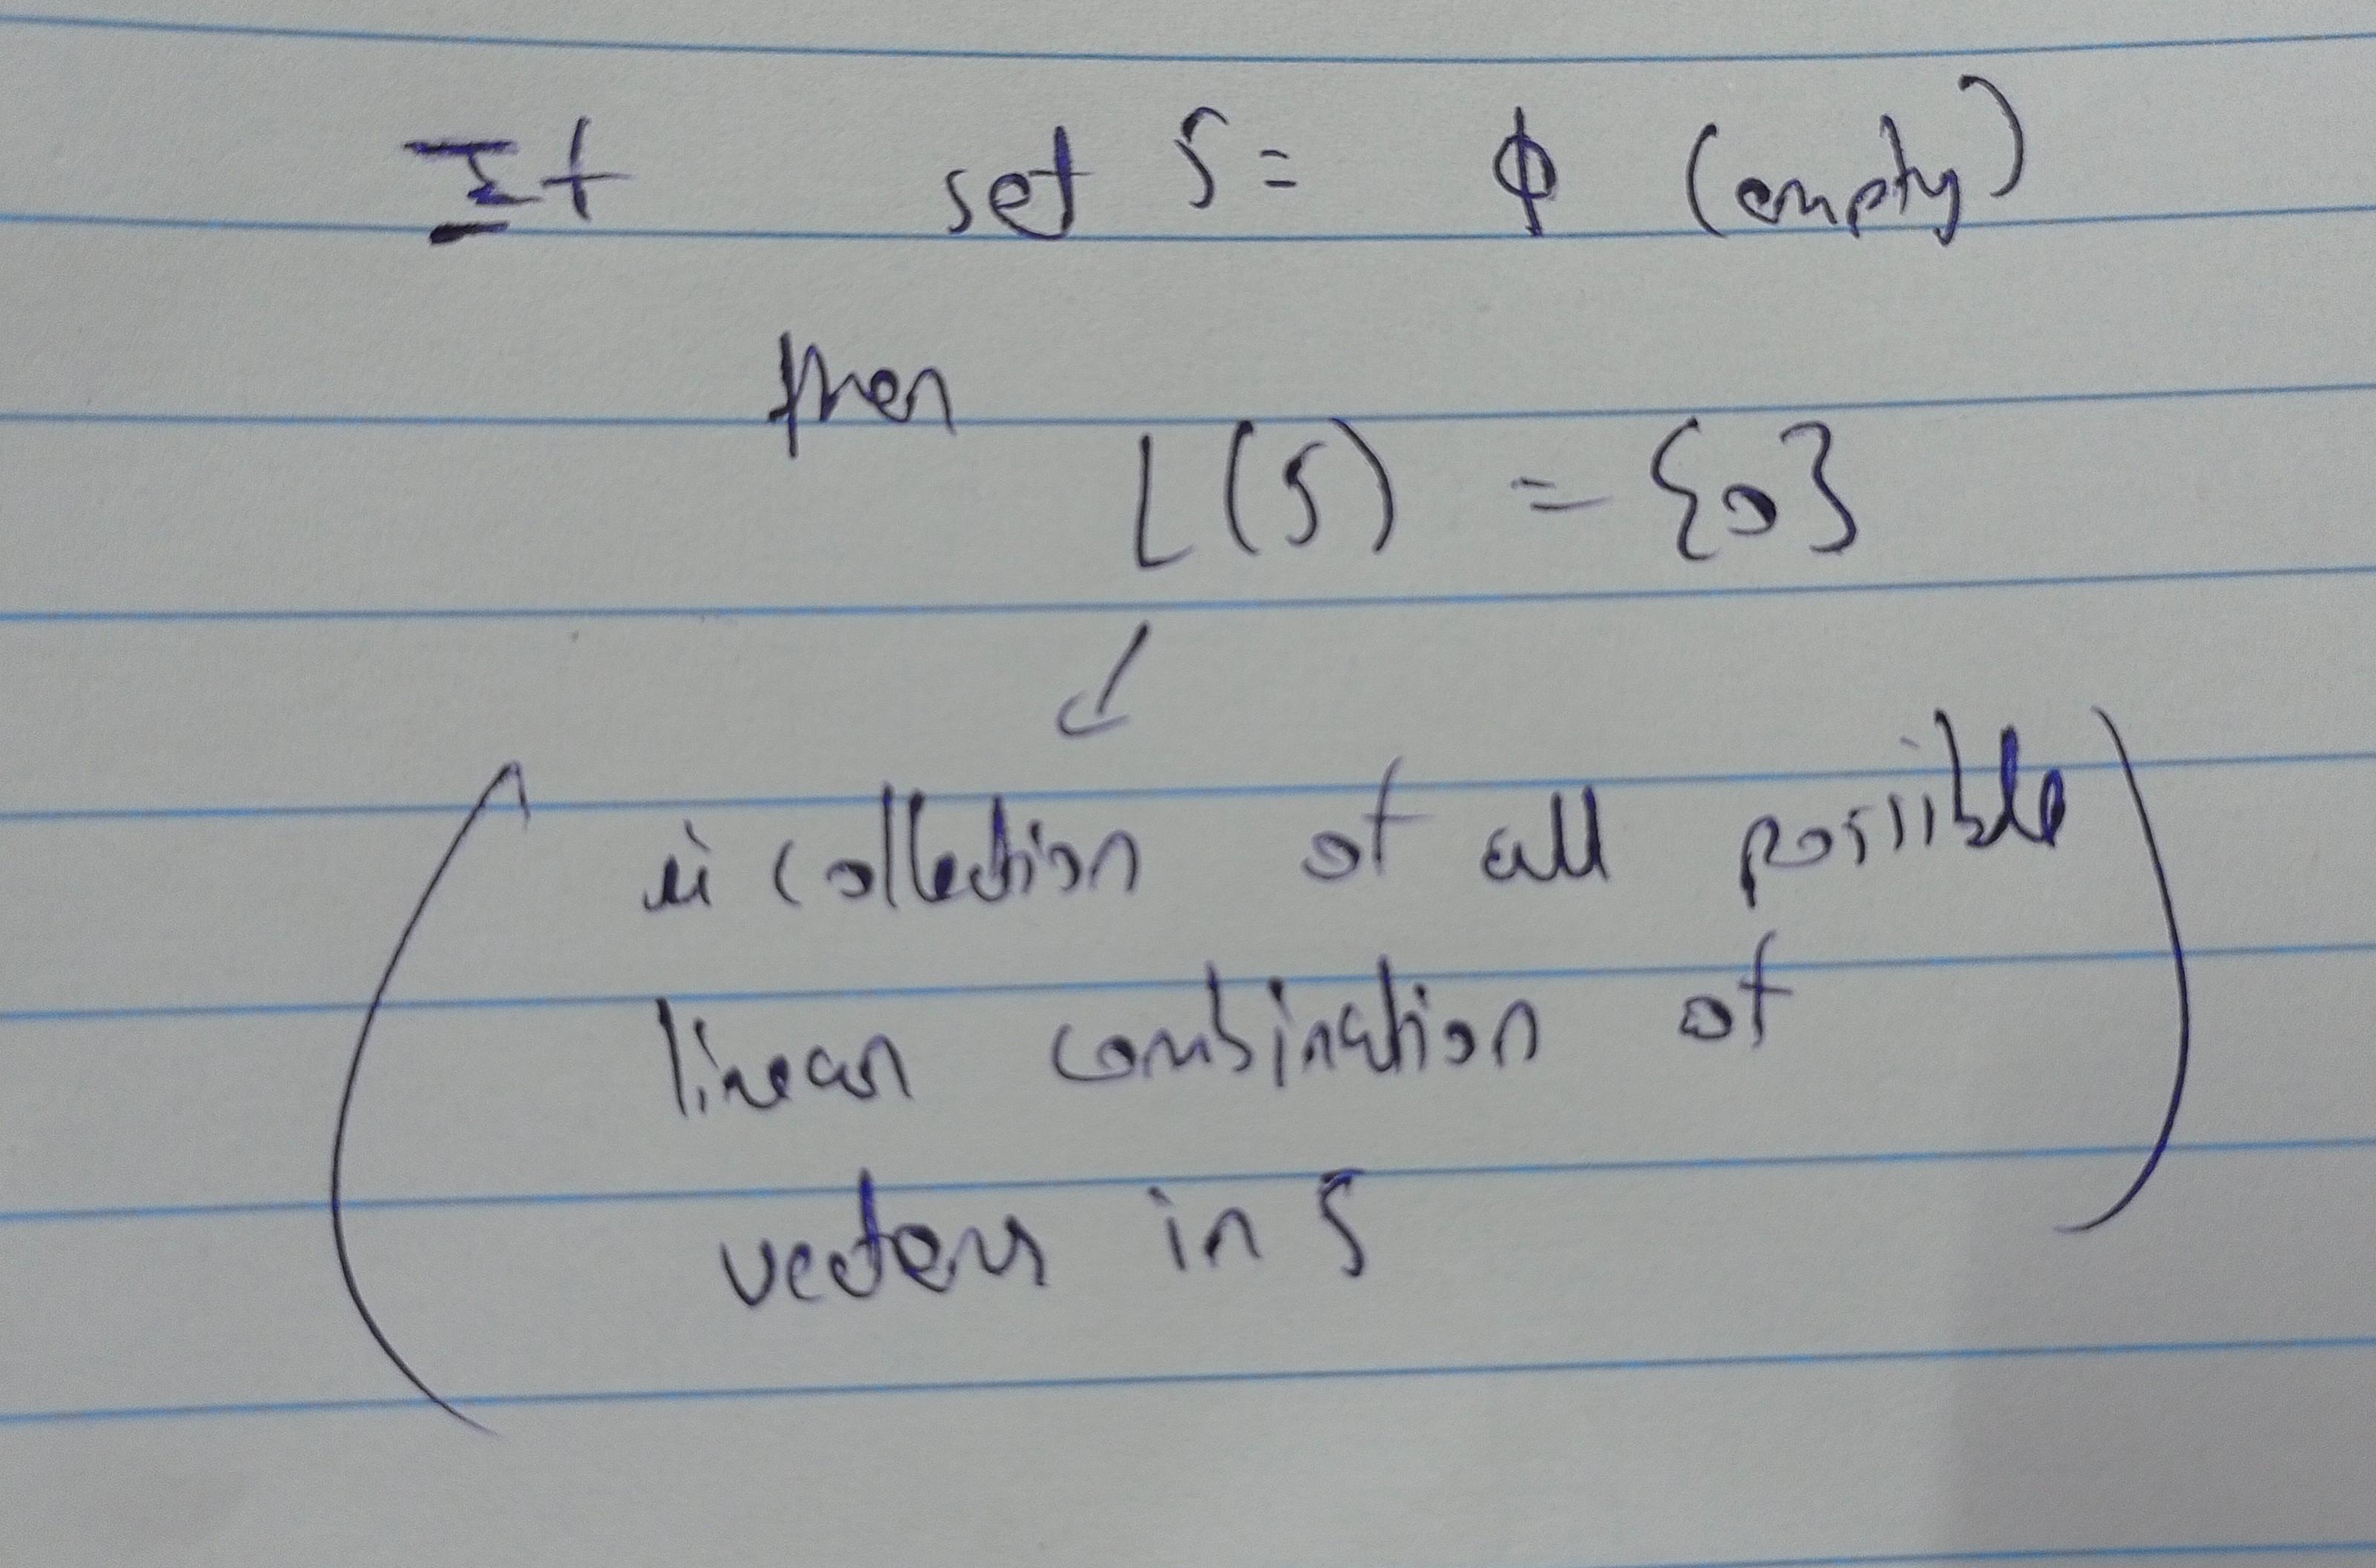 If set S = ϕ (empty)
then
L(S) = {0}
is collection of all possible
linear combination of
vectors in S